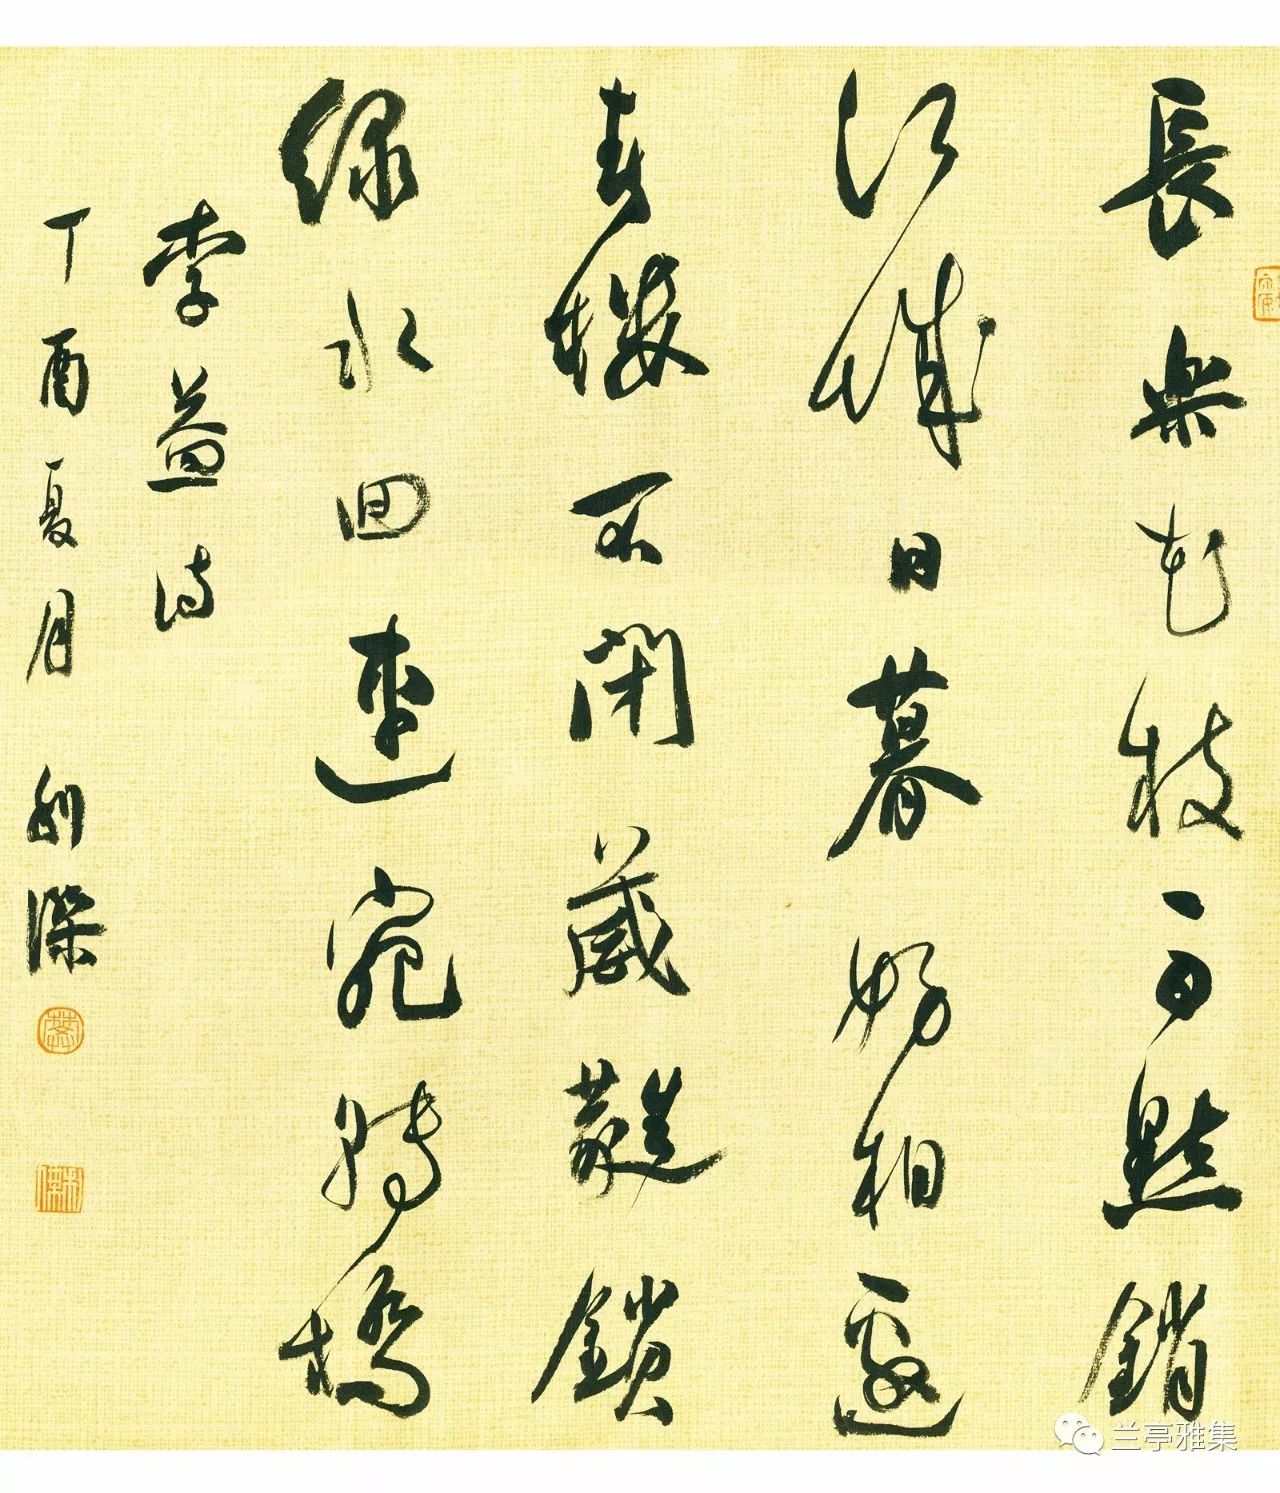 長樂花枝雨點銷
江城日暮好相邀
春樓不閉葳蕤鎖
綠水回連宛轉橋
李益詩
丁酉夏月
兰亭雅集